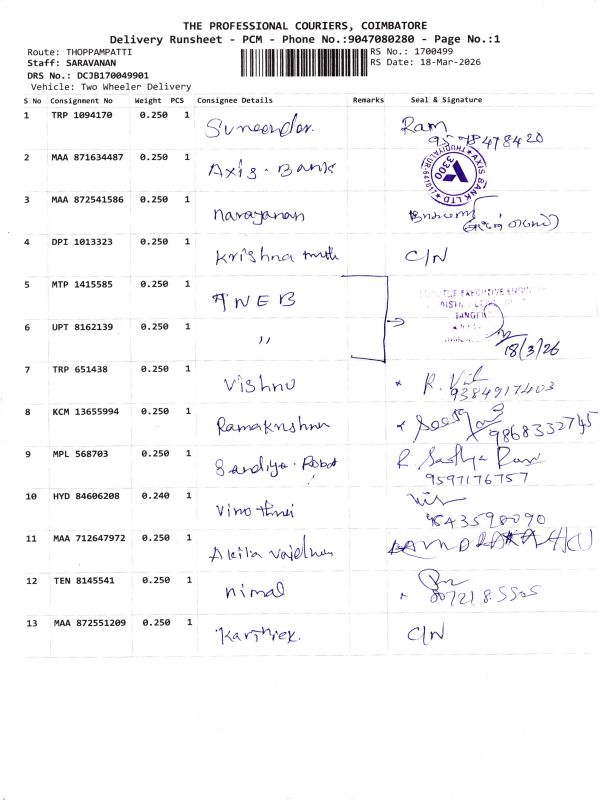 THE PROFESSIONAL COURIERS, COIMBATORE
Delivery Runsheet - PCM - Phone No.:9047080280 - Page No.:1
Route: THOPPAMPATTI RS No.: 1700499
Staff: SARAVANAN RS Date: 18-Mar-2026
DRS No.: DCJB170049901
Vehicle: Two Wheeler Delivery
S No Consignment No Weight PCS Consignee Details Remarks Seal & Signature
1 TRP 1094170 0.250 1 Surender. Ram
9578478420
2 MAA 871634487 0.250 1 Axis. Bank AXIS BANK LTD 3300
3 MAA 872541586 0.250 1 narayanan
4 DPI 1013323 0.250 1 Krishna C/N
5 MTP 1415585 0.250 1 TNEB
6 UPT 8162139 0.250 1 " 18/3/26
7 TRP 651438 0.250 1 Vishnu R.
9384917403
8 KCM 13655994 0.250 1 Ramakrishnan
9868332745
9 MPL 568703 0.250 1 Sandiya. Robot R Sathya
9597176757
10 HYD 84606208 0.240 1
9543598090
11 MAA 712647972 0.250 1 Akila
12 TEN 8145541 0.250 1 nimal
13 MAA 872551209 0.250 1 Karthick. C/N